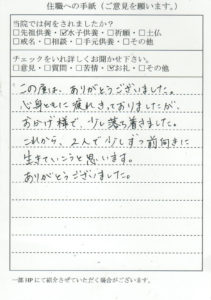 住職への手紙（ご意見を願います。）
当院では何をされましたか？
□先祖供養・☑水子供養・□祈願・□土仏
□戒名・□相談・□手元供養・□その他
チェックをいれ詳しくお聞かせ下さい。
□意見・□質問・□苦情・☑お礼・□その他
この度は、ありがとうございました。
心身ともに疲れきっておりましたが、
おかげ様で、少し落ち着きました。
これから、2人で少しずつ前向きに
生きていこうと思います。
ありがとうございました。
一部HPにて紹介をさせていただく場合がございます。